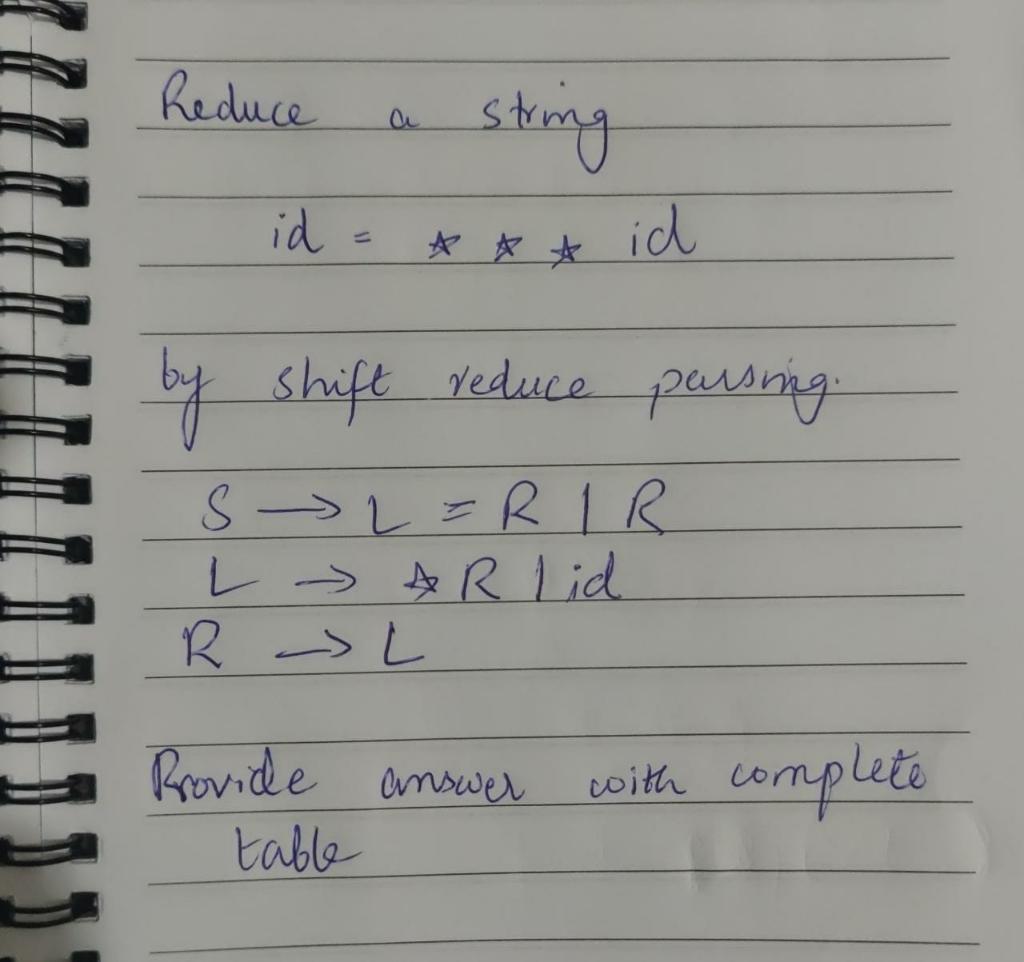 Reduce a string
id = * * * id
by shift reduce parsing.
S → L = R | R
L → * R | id
R → L
Provide answer with complete
table